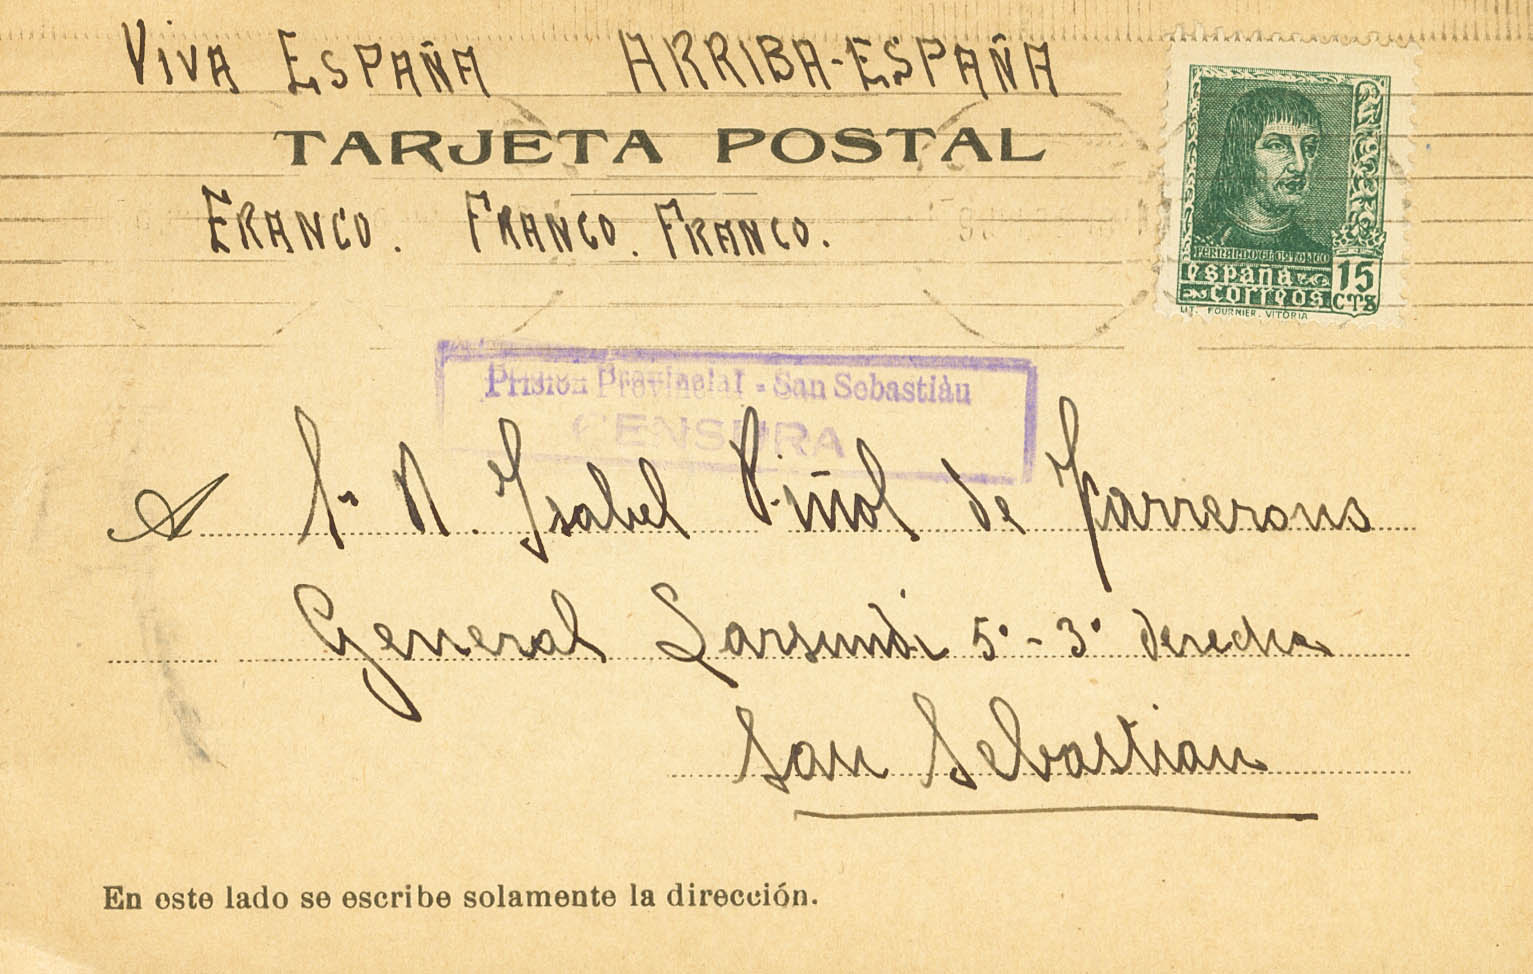 VIVA ESPAÑA ARRIBA-ESPAÑA
TARJETA POSTAL
FRANCO. FRANCO. FRANCO.
FERNANDO EL CATOLICO
españa
correos
15
CTS
LIT. FOURNIER. VITORIA
Prisión Provincial - San Sebastiàn
CENSURA
A Sra N. Isabel Piñol de Farrerons
General Larsundi 5º - 3º derecha
San Sebastian
En este lado se escribe solamente la dirección.